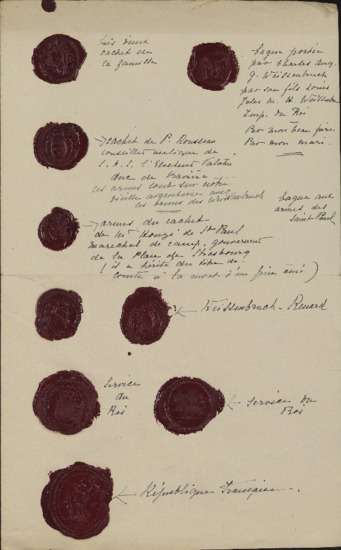 très vieux
cachet de
la famille
bague portée
par Charles Aug.
G. Weissenbruch
par son fils Louis
Jules M. H. Weissenbruch
Imp. du Roi
Par mon beau père
Par mon mari.
cachet de P. Rousseau
conseiller aulique de
S. A. S. l'Electeur Palatin
duc de Bavière
ces armes sont sur notre
vieille argenterie avec
les armes des Weissenbruch
bague aux
armes des
Saint Paul
armes du cachet
de Mr Houzé de St Paul
marechal de camp, gouverneur
de la Place de Strasbourg
(il a hérité du titre de
comte à la mort d'un frère ainé)
Weissenbruch - Renard
Service
du
Roi
Service du
Roi
République Française.